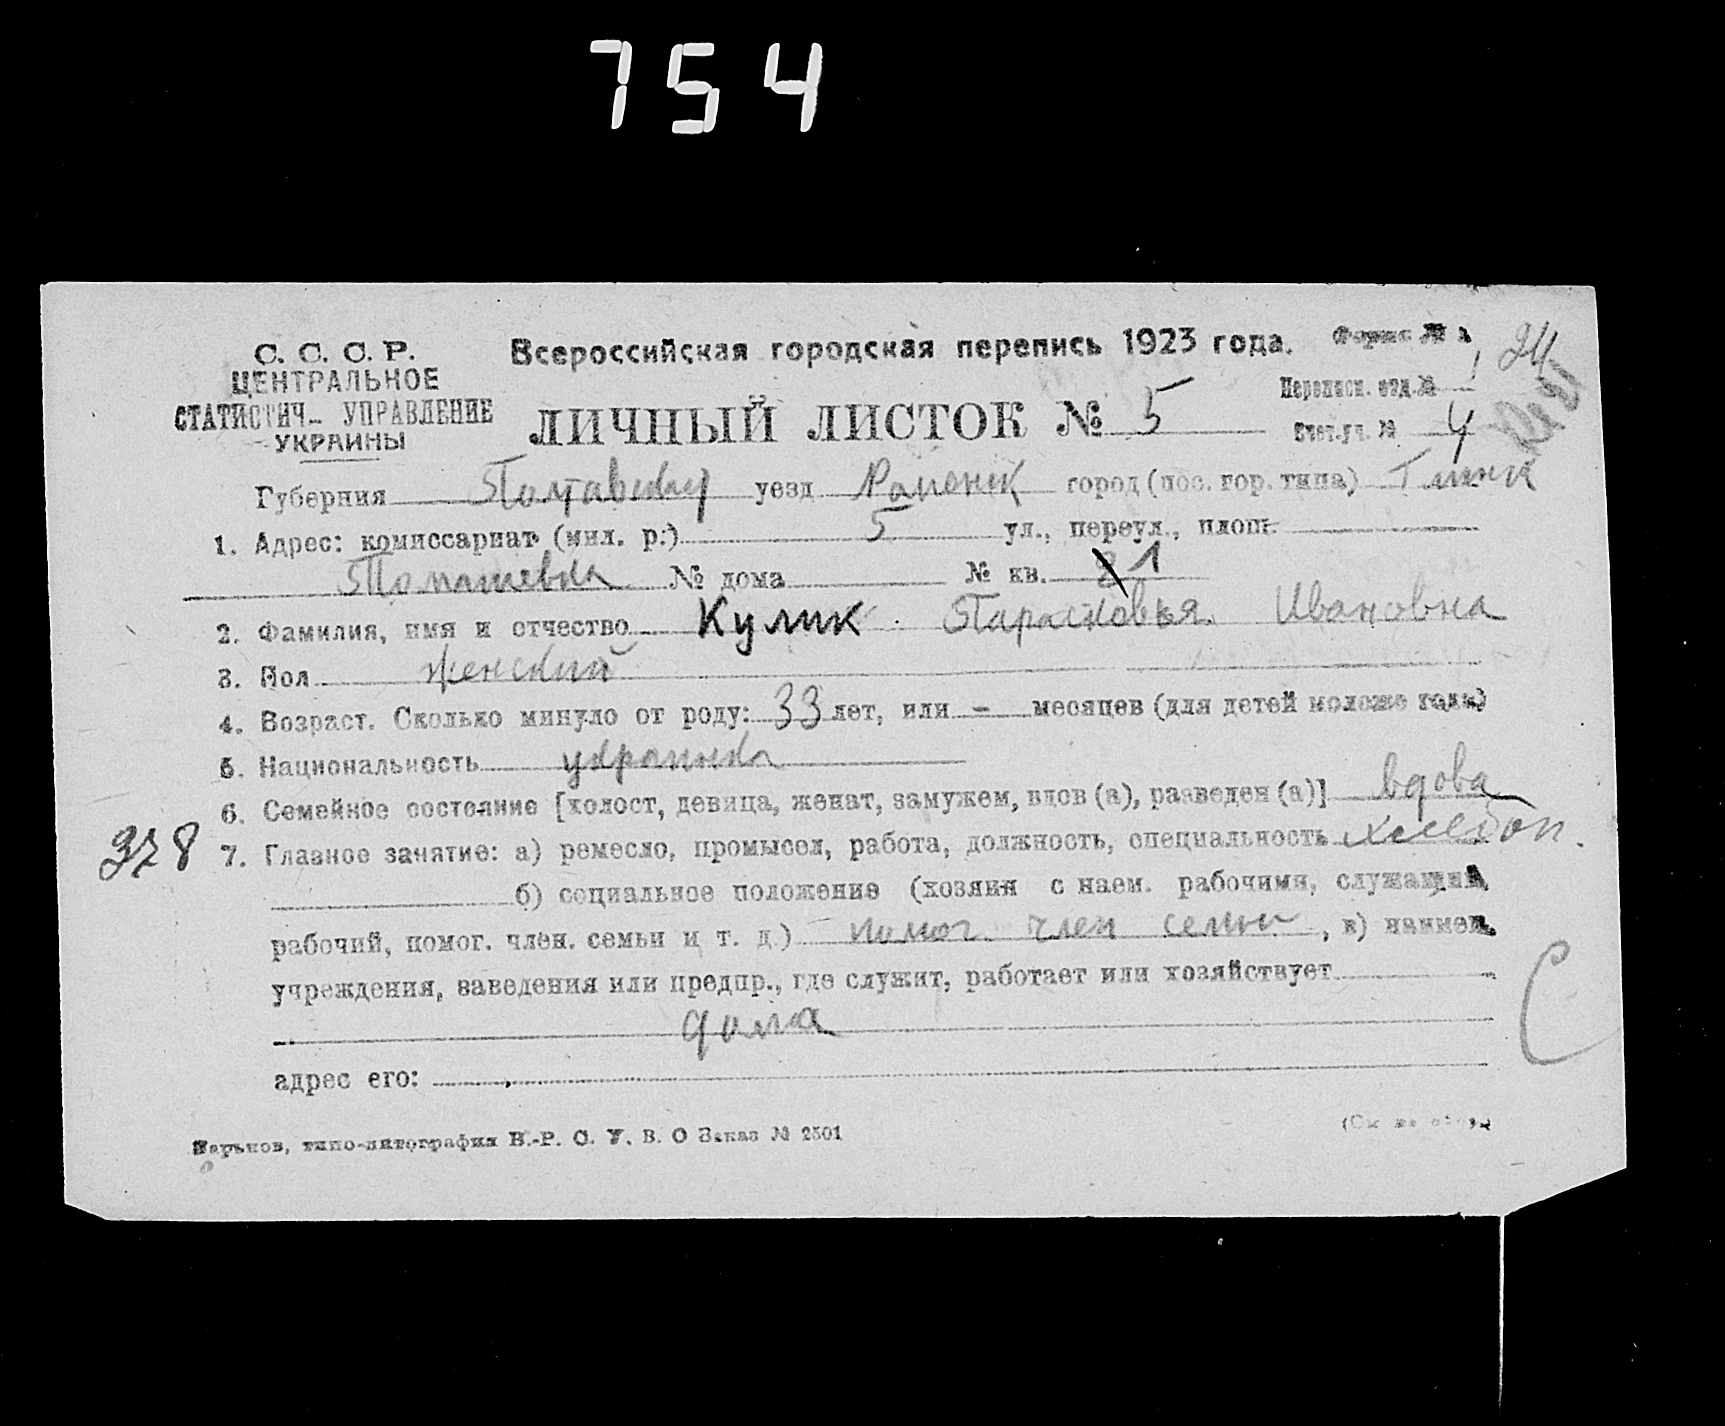 754
С. С. С. Р.
ЦЕНТРАЛЬНОЕ
СТАТИСТИЧ- УПРАВЛЕНИЕ
УКРАИНЫ
Всероссийская городская перепись 1923 года.
Форма № 1
24
Переписн. отд. №
ЛИЧНЫЙ ЛИСТОК № 5
Счет.уч. № 4
Губерния Полтавская уезд город (пос. гор. типа)
1. Адрес: комиссариат (мил. р.) 5 ул., переул., площ.
№ дома № кв. 1
2. Фамилия, имя и отчество Кулик Парасковья Ивановна
3. Пол женский
4. Возраст. Сколько минуло от роду: 33 лет, или - месяцев (для детей моложе года)
5. Национальность украинка
6. Семейное состояние [холост, девица, женат, замужем, вдов (а), разведен (а)] вдова
378
7. Главное занятие: а) ремесло, промысел, работа, должность, специальность хлебоп.
б) социальное положение (хозяин с наем. рабочими, служащий,
рабочий, помог. член. семьи и т. д.) помог. член семьи, в) наимен.
учреждения, заведения или предпр., где служит, работает или хозяйствует
дома
адрес его:
С
Харьков, типо-литография В.-Р. С. У. В. О Заказ № 2501